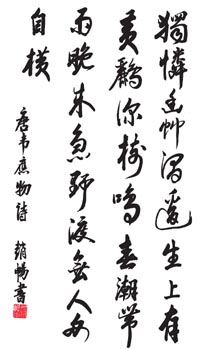 獨憐幽艸澗邊生上有
黃鸝深樹鳴春潮帶
雨晚来急野渡無人舟
自橫
唐韋應物詩 趙暢書